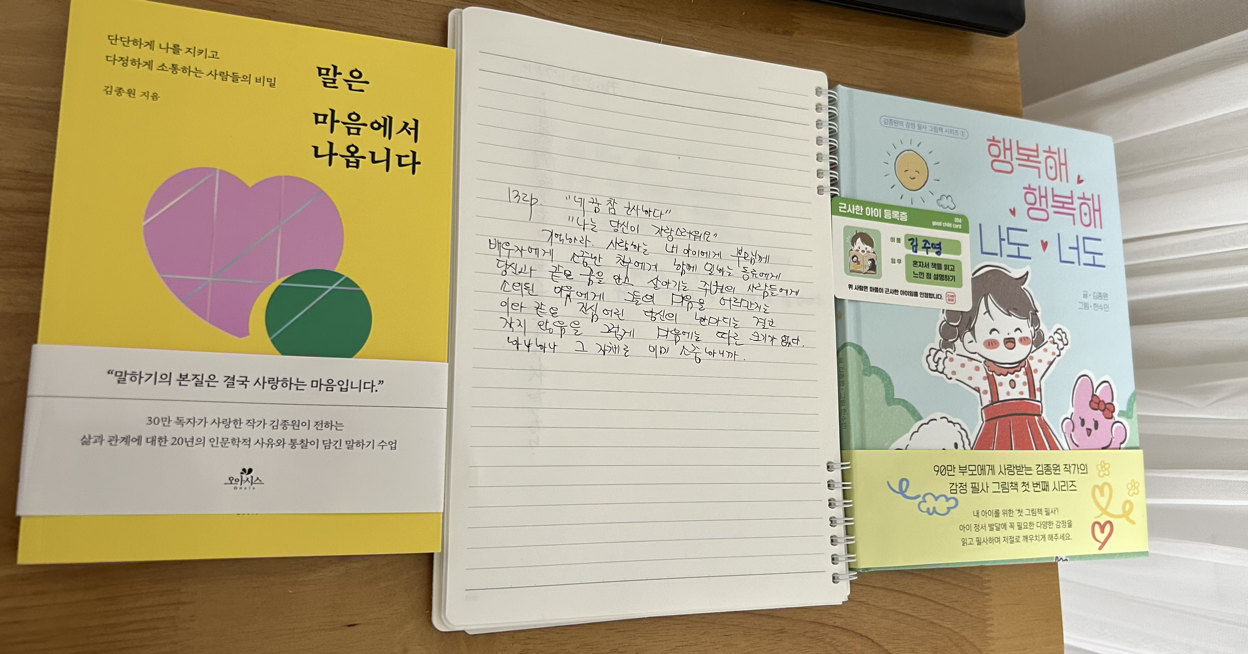 단단하게 나를 지키고
다정하게 소통하는 사람들의 비밀
김종원 지음
말은
마음에서
나옵니다
“말하기의 본질은 결국 사랑하는 마음입니다.”
30만 독자가 사랑한 작가 김종원이 전하는
삶과 관계에 대한 20년의 인문학적 사유와 통찰이 담긴 말하기 수업
오아시스
132p. "네 꿈 참 근사하다"
"나는 당신이 자랑스러워요"
기억하라. 사랑하는 내 아이에게 부모님께
배우자에게 소중한 친구에게 함께 일하는 동료에게
당신과 같은 꿈을 안고 살아가는 주변의 사람들에게
소외된 이웃에게 그들의 마음을 어루만지는
이와 같은 진심 어린 당신의 한마디는 결코
작지 않음을 그렇게 마음에는 따로 크기가 없다.
하나하나 그 자체로 이미 소중하니까.
김종원의 감정 필사 그림책 시리즈 1
행복해
행복해
나도 너도
글·김종원
그림·한수민
근사한 아이 등록증
이름 김주영
임무 혼자서 책을 읽고
느낀 점 설명하기
위 사람은 마음이 근사한 아이임을 인정합니다.
90만 부모에게 사랑받는 김종원 작가의
감정 필사 그림책 첫 번째 시리즈
내 아이를 위한 '첫 그림책 필사'!
아이 정서 발달에 꼭 필요한 다양한 감정을
읽고 필사하며 저절로 깨우치게 해주세요.